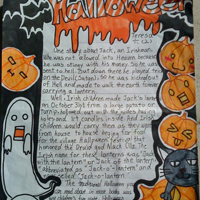 Halloween
Teresa
One story about Jack, an Irishman,
who was not allowed into Heaven because
he was stingy with his money. So he was
sent to hell. But down there he played tricks
on the Devil (Satan), so he was kicked out
of Hell and made to walk the earth forever
carrying a lantern.
Well, Irish children made Jack's lanterns
on October 31st from a large potato or
turnip, hollowed out with the sides having
holes and lit candles inside. And Irish
children would carry them as they went
from house to house begging for food
for the village Halloween festival that
honored the Druid god Muck Olla. The
Irish name for these lanterns was "Jack
with the lantern" or "Jack of the lantern"
abbreviated as "Jack-o'-lantern" and
now spelled "Jack-o-lantern".
The traditional Halloween you